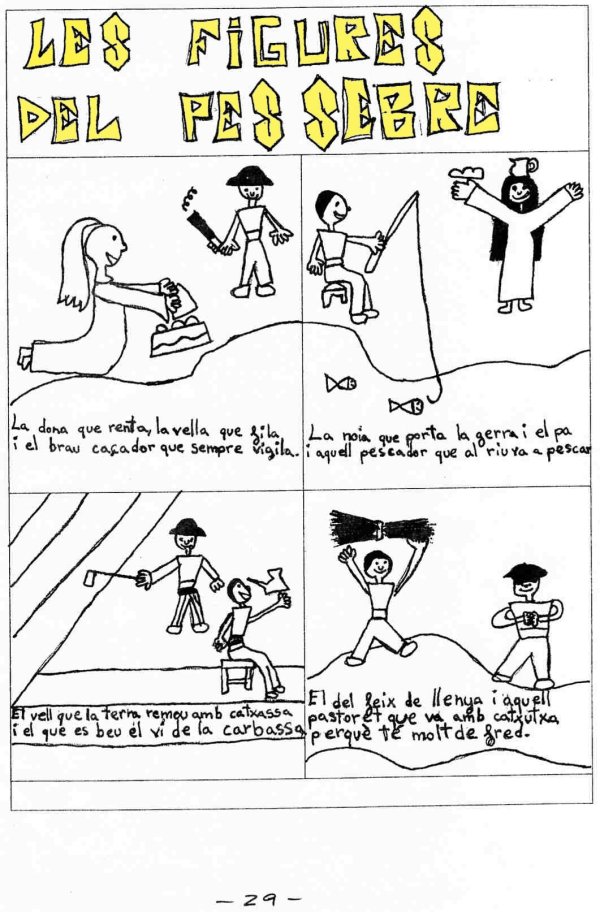 LES FiGURES
DEL PESSEBRE
La dona que renta, la vella que fila
i el brau caçador que sempre vigila.
La noia que porta la gerra i el pa
i aquell pescador que al riu va a pescar
El vell que la terra remou amb catxassa
i el que es beu el vi de la carbassa
El del feix de llenya i aquell
pastoret que va amb catxutxa
perquè té molt de fred.
- 29 -